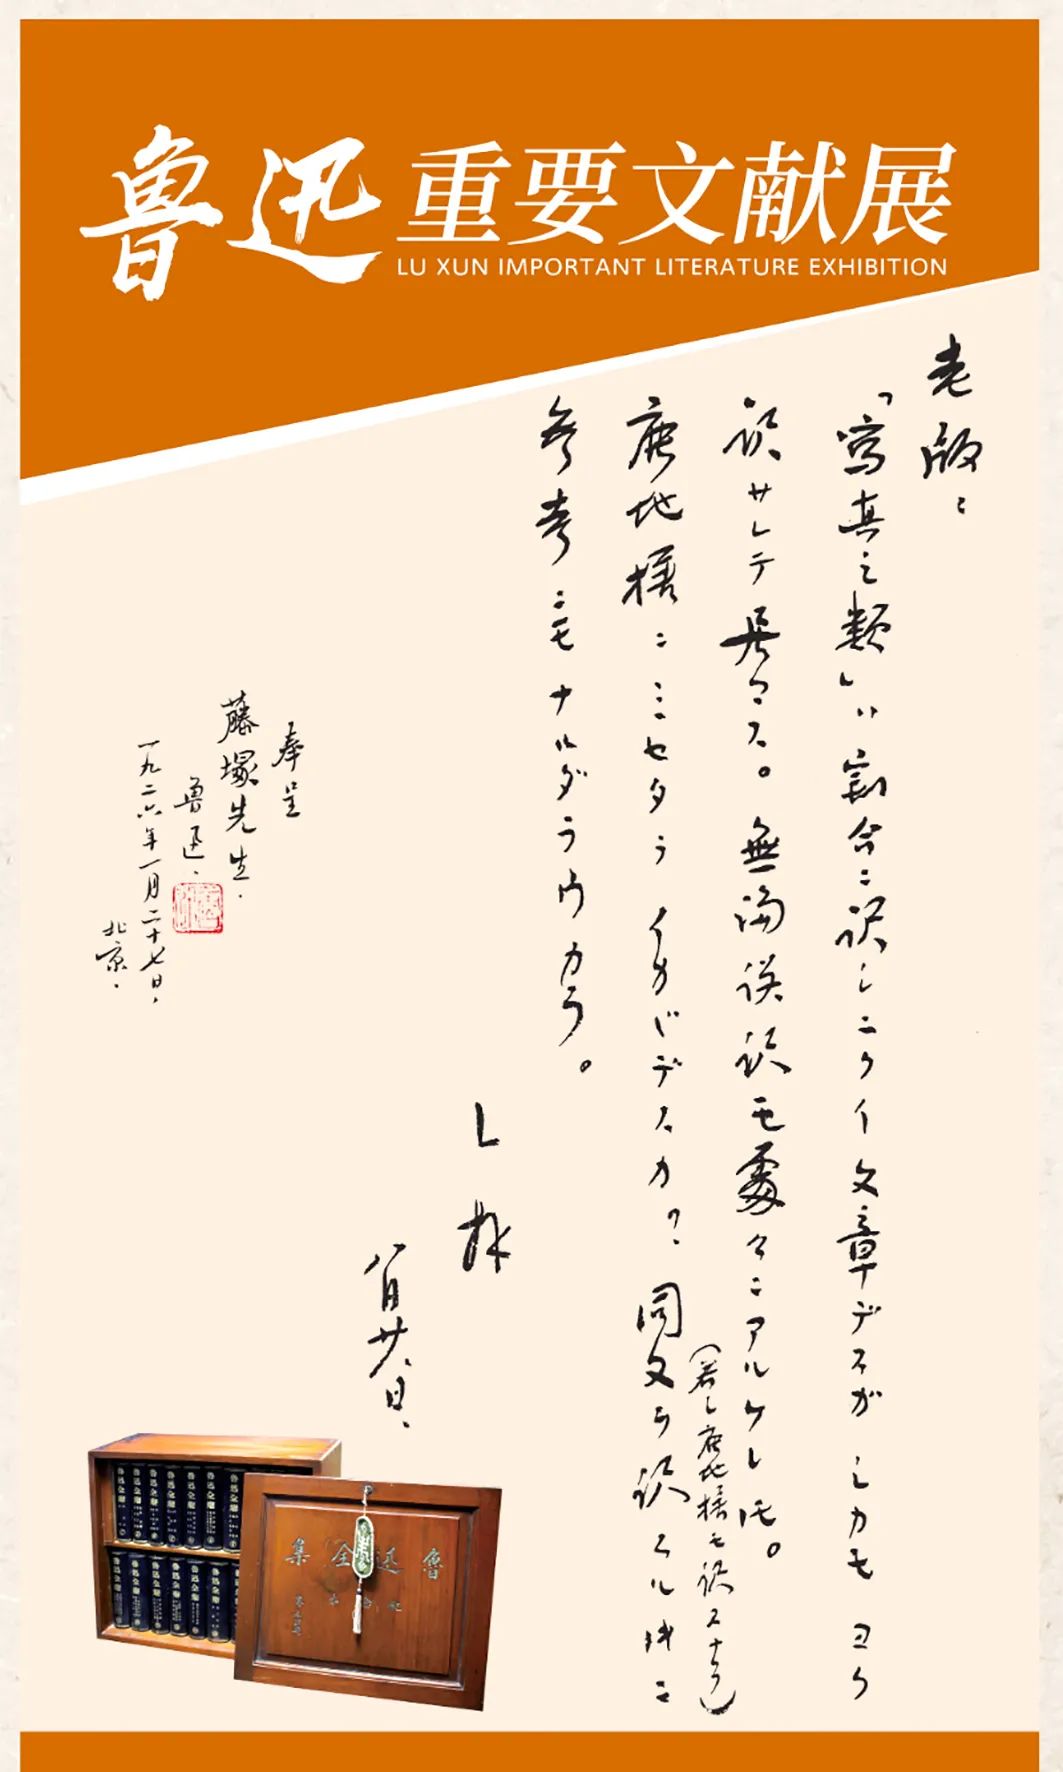 魯迅重要文献展
LU XUN IMPORTANT LITERATURE EXHIBITION
老版:
「寫真之類」ハ割合ニ訳シニクイ文章デスガシカモヨク
訳サレテ居マス。無論誤訳モ處々ニアルケレドモ。
(若シ鹿地様モ訳スナラ)
鹿地様ニミセタライカガデスカ?同文ヲ訳スル時ニ
参考ニモナルダラウカラ。
L 拝
八月廿日、
奉呈
藤塚先生.
魯迅.
一九二六年一月二十七日,
北京.
魯迅全集